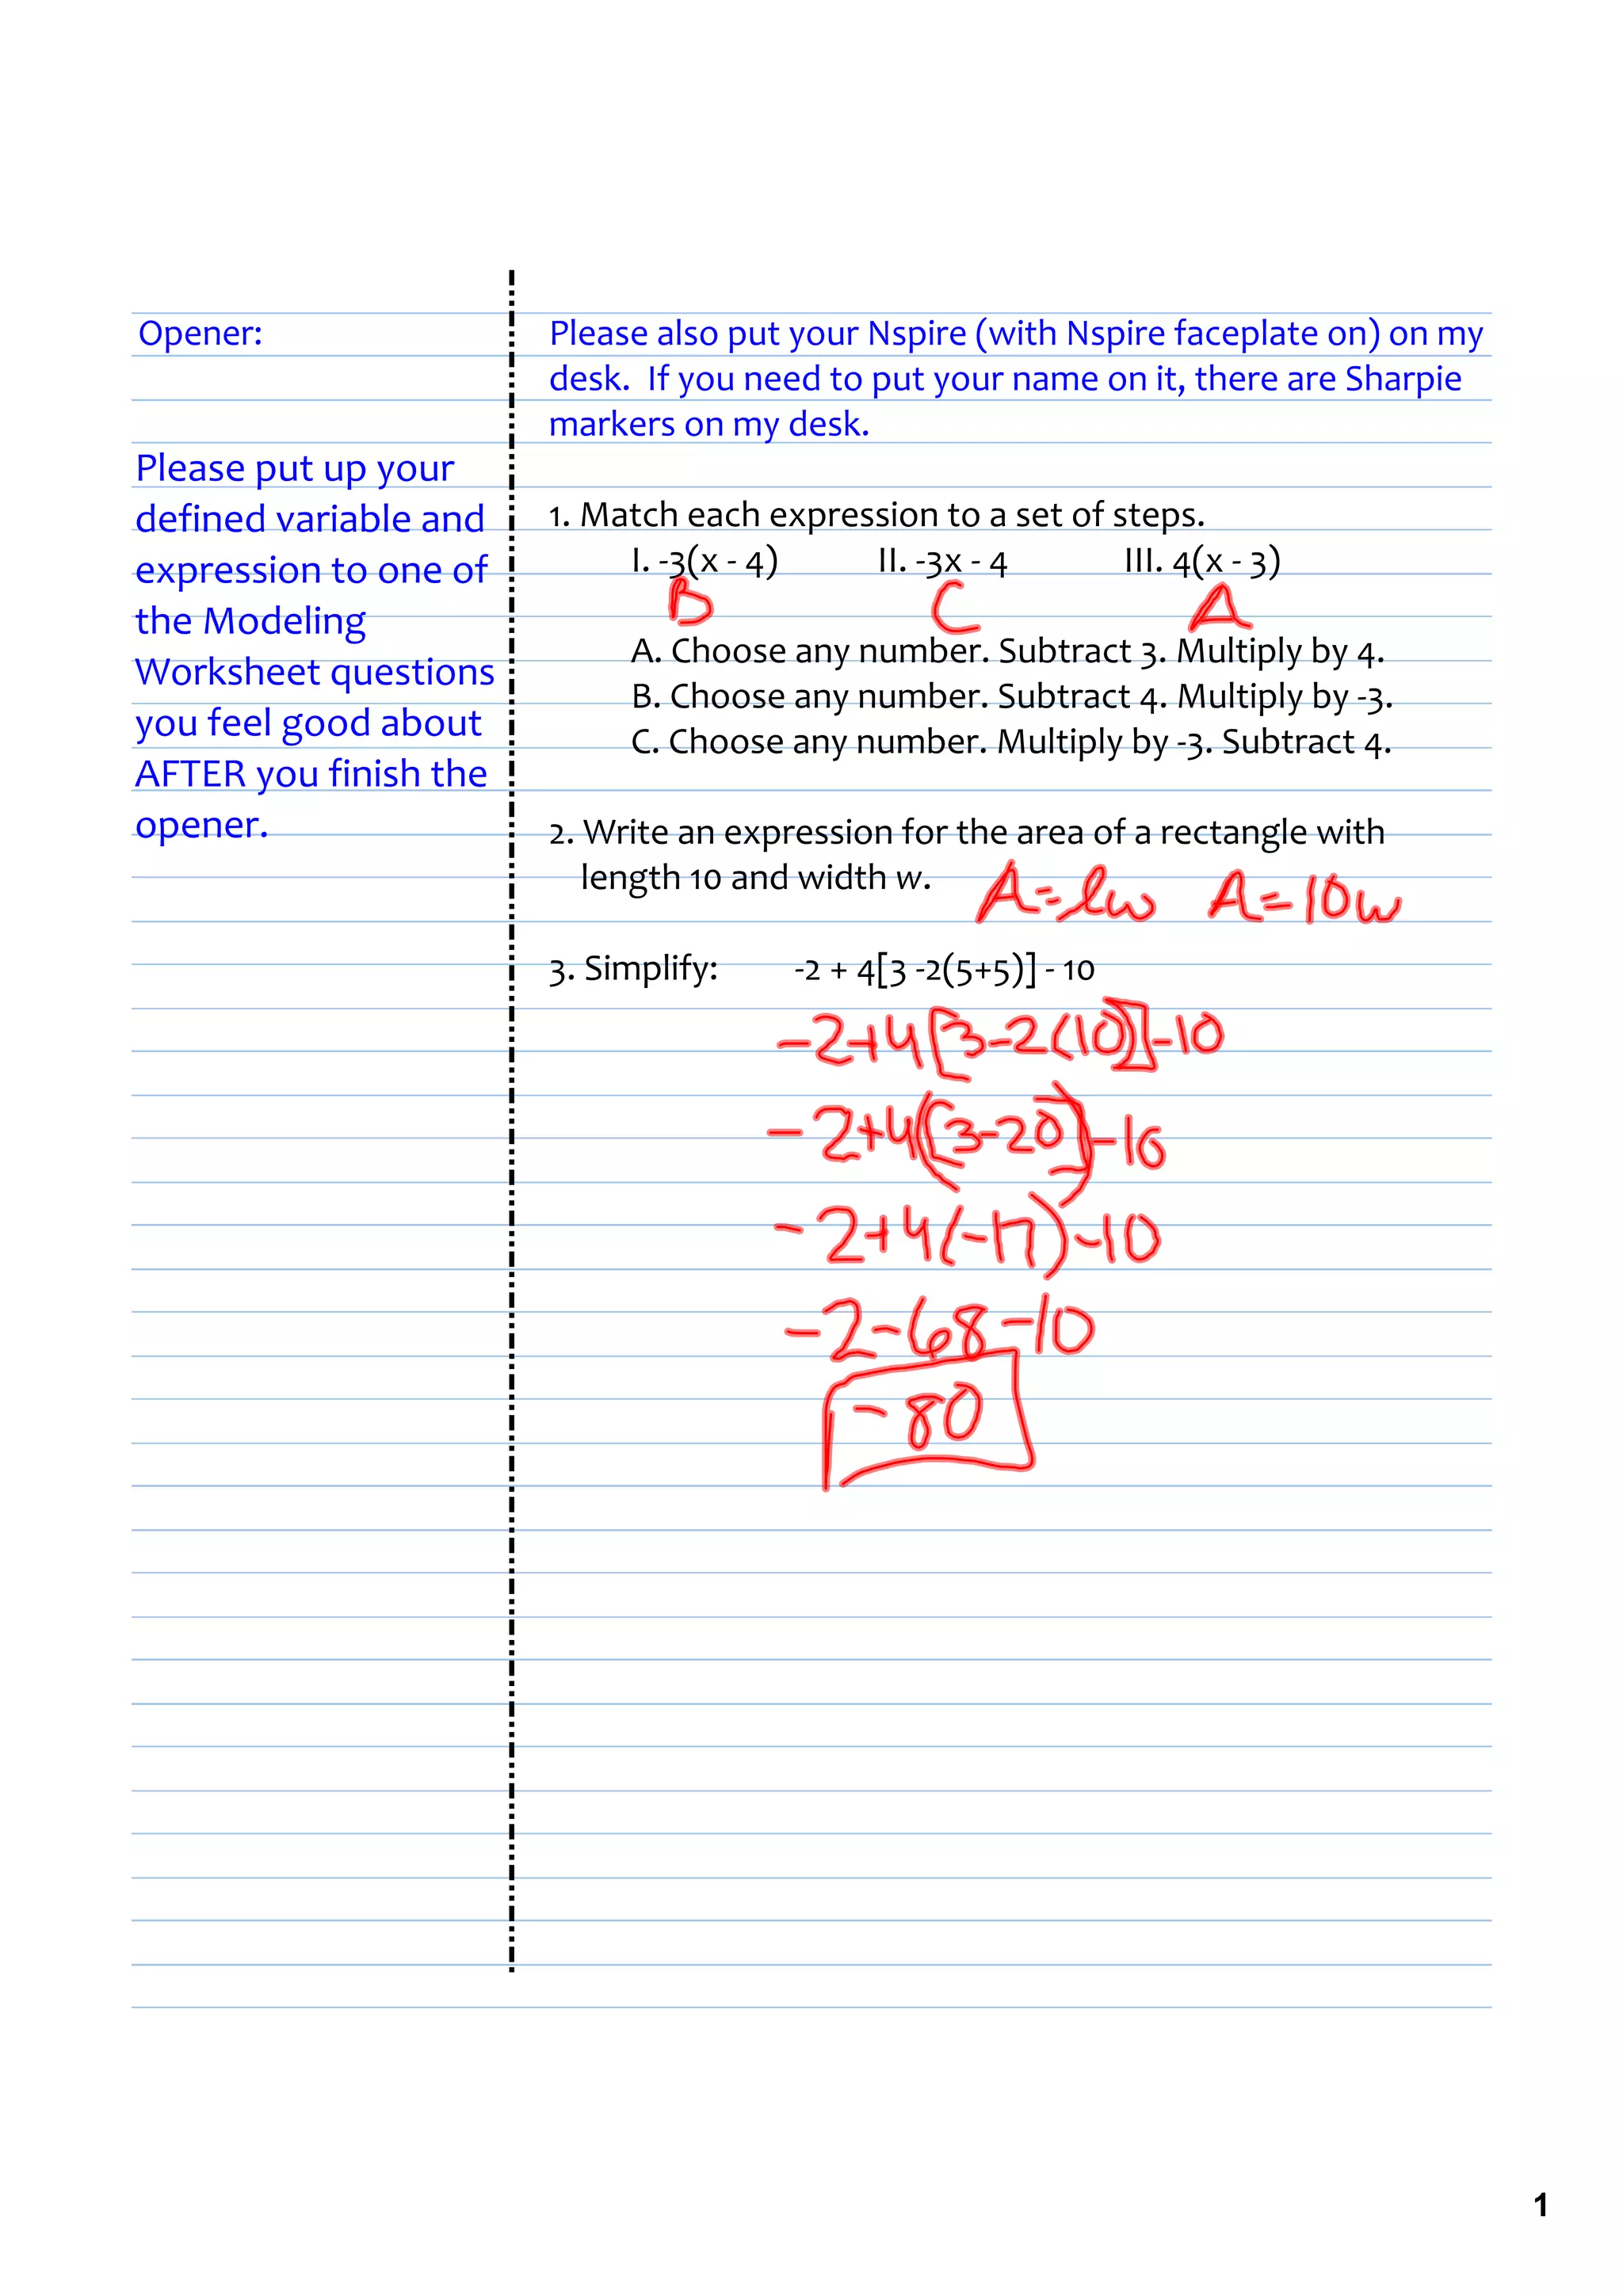 Opener:
Please put up your
defined variable and
expression to one of
the Modeling
Worksheet questions
you feel good about
AFTER you finish the
opener.
Please also put your Nspire (with Nspire faceplate on) on my
desk.  If you need to put your name on it, there are Sharpie
markers on my desk.
1. Match each expression to a set of steps.
I. -3(x - 4) II. -3x - 4 III. 4(x - 3)
B C A
A. Choose any number. Subtract 3. Multiply by 4.
B. Choose any number. Subtract 4. Multiply by -3.
C. Choose any number. Multiply by -3. Subtract 4.
2. Write an expression for the area of a rectangle with
length 10 and width w. A=lw A=10w
3. Simplify: -2 + 4[3 -2(5+5)] - 10
-2+4[3-2(10)]-10
-2+4([3-20])-10
-2+4(-17)-10
-2-68-10
-80
1